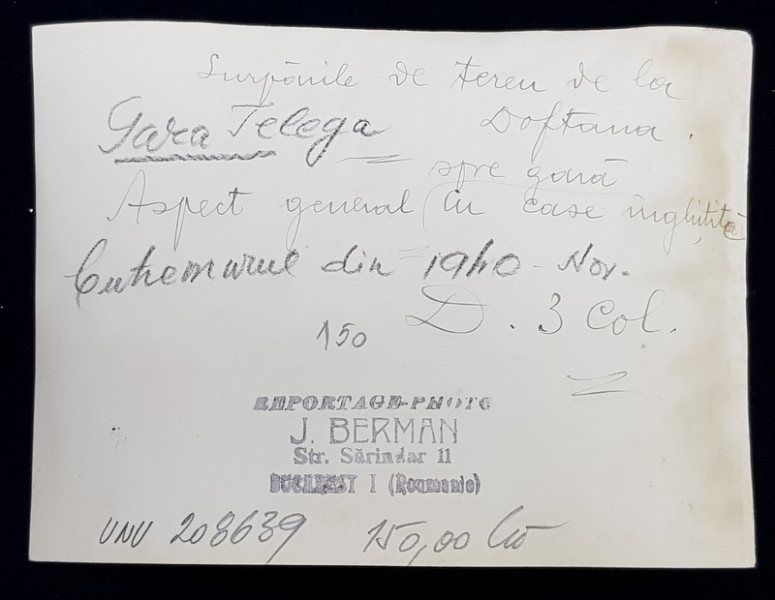 Surpările de teren de la
Gara Telega Doftana.
spre gară
Aspect general cu case înghițite
Cutremurul din 1940 - Nov.
150 D. 3 Col.
REPORTAGE-PHOTO
J. BERMAN
Str. Sărindar 11
BUCAREST I (Roumanie)
UNU 208639 150,00 lei